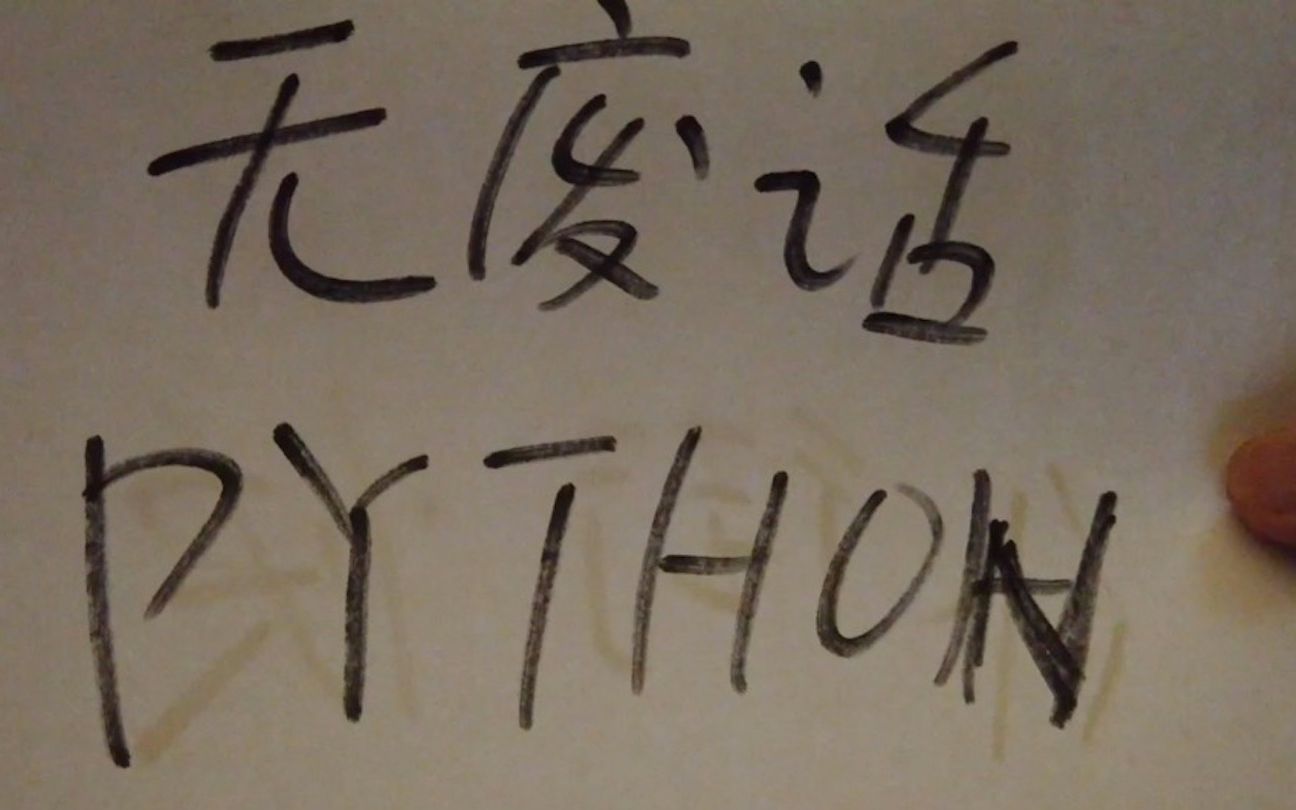 无废话
PYTHON